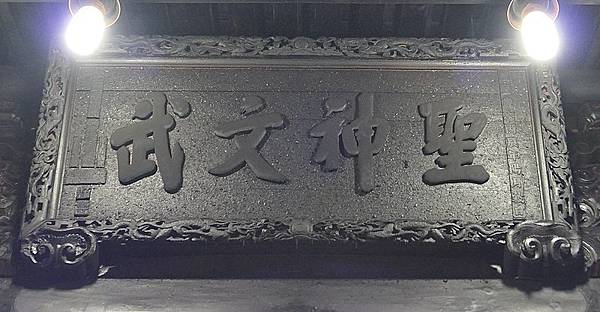 聖神文武